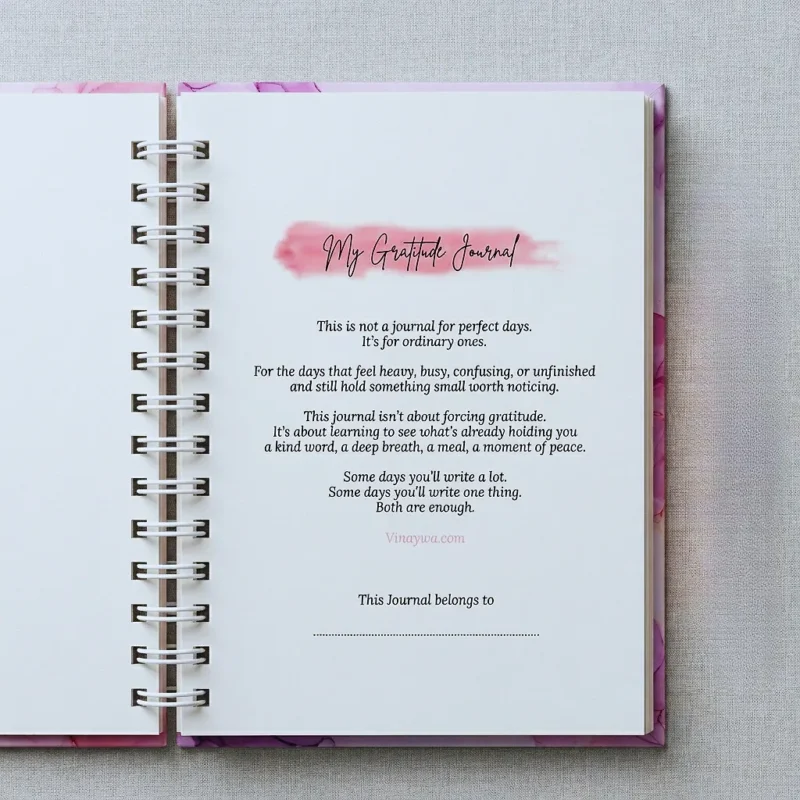 My Gratitude Journal
This is not a journal for perfect days.
It's for ordinary ones.
For the days that feel heavy, busy, confusing, or unfinished
and still hold something small worth noticing.
This journal isn't about forcing gratitude.
It's about learning to see what's already holding you
a kind word, a deep breath, a meal, a moment of peace.
Some days you'll write a lot.
Some days you'll write one thing.
Both are enough.
Vinaywa.com
This Journal belongs to